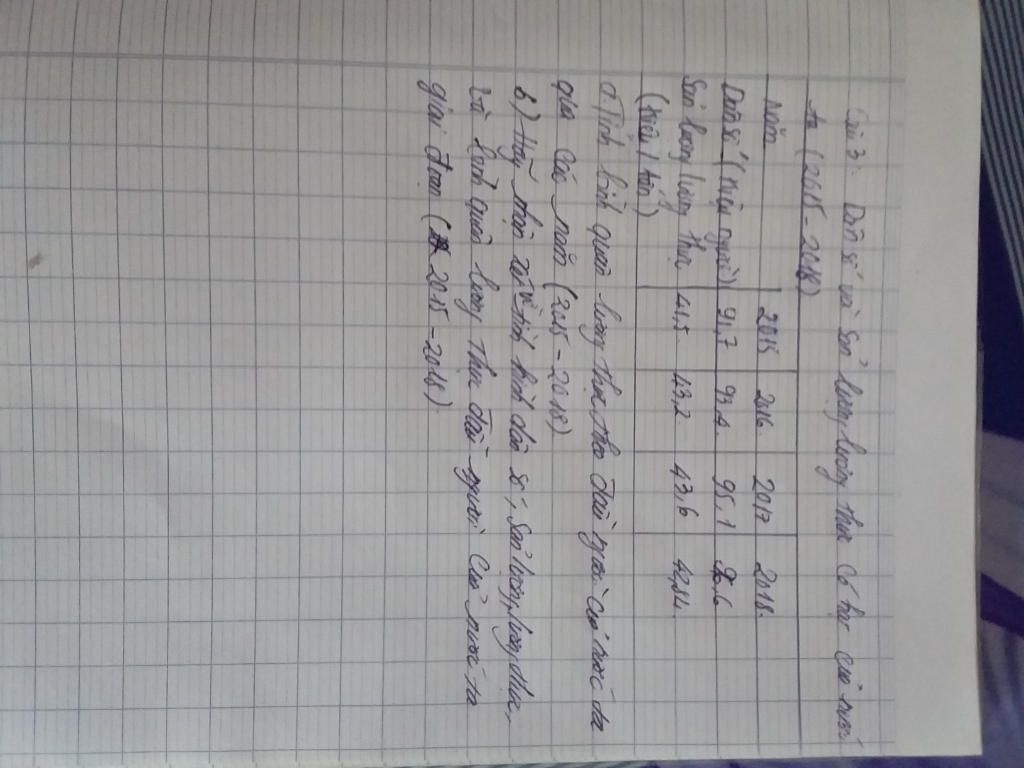 Câu 3: Dân số và sản lượng lương thực có hạt của nước
ta (2015 - 2018)
Năm 2015 2016 2017 2018
Dân số (triệu người) 91,7 93,4 95,1 96,6
Sản lượng lương thực 41,5 43,2 43,6 42,84
(triệu tấn)
a) Tính bình quân lương thực theo đầu người của nước ta
qua các năm (2015 - 2018)
b) Hãy nhận xét tình hình dân số, sản lượng lương thực,
và bình quân lương thực đầu người của nước ta
giai đoạn (2015 - 2018)